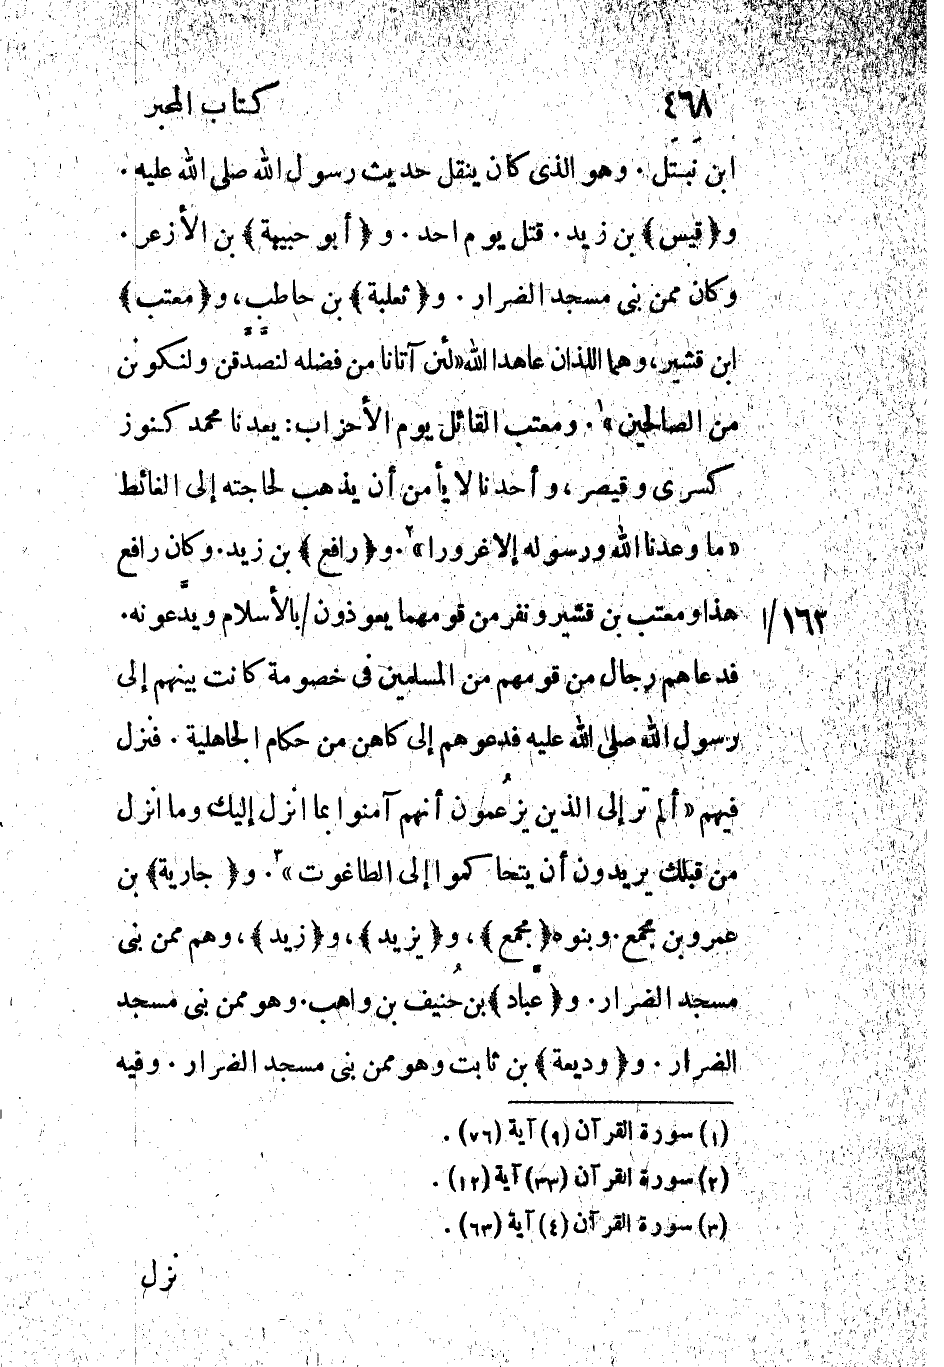 ٤٦٨ كتاب المحبر
ابن نبتل . وهو الذى كان ينقل حديث رسول الله صلى الله عليه .
و﴿قيس﴾ بن زيد . قتل يوم احد . و ﴿أبو حبيبة﴾ بن الأزعر .
وكان ممن بنى مسجد الضرار . و﴿ ثعلبة﴾ بن حاطب، و﴿ معتب﴾
ابن قشير، وهما اللذان عاهدا الله «لئن آتانا من فضله لنصّدّقن ولنكونن
من الصالحين»١ . ومعتب القائل يوم الأحزاب: يعدنا محمد كنوز
كسرى وقيصر، وأحدنا لا يأمن أن يذهب لحاجته إلى الغائط
«ما وعدنا الله ورسوله إلا غرورا»٢ . و﴿ رافع﴾ بن زيد. وكان رافع
هذا ومعتب بن قشير ونفر من قومهما يعوذون /بالأسلام ويدّعونه. ١٦٣/ا
فدعاهم رجال من قومهم من المسلمين فى خصومة كانت بينهم إلى
رسول الله صلى الله عليه فدعوهم إلى كاهن من حكام الجاهلية . فنزل
فيهم « ألم تر إلى الذين يزعُمون أنهم آمنوا بما انزل إليك وما انزل
من قبلك يريدون أن يتحاكموا إلى الطاغوت »٣ . و﴿ جارية﴾ بن
عمرو بن مجمع. وبنوه ﴿ مجمع ﴾، و﴿ يزيد ﴾، و﴿ زيد ﴾، وهم ممن بنى
مسجد الضرار. و﴿ عبّاد﴾ بن حُنيف بن واهب. وهو ممن بنى مسجد
الضرار . و﴿ وديعة﴾ بن ثابت وهو ممن بنى مسجد الضرار . وفيه
(١) سورة القرآن (٩) آية (٧٦) .
(٢) سورة القرآن (٣٣) آية (١٢) .
(٣) سورة القرآن (٤) آية (٦٣) .
نزل